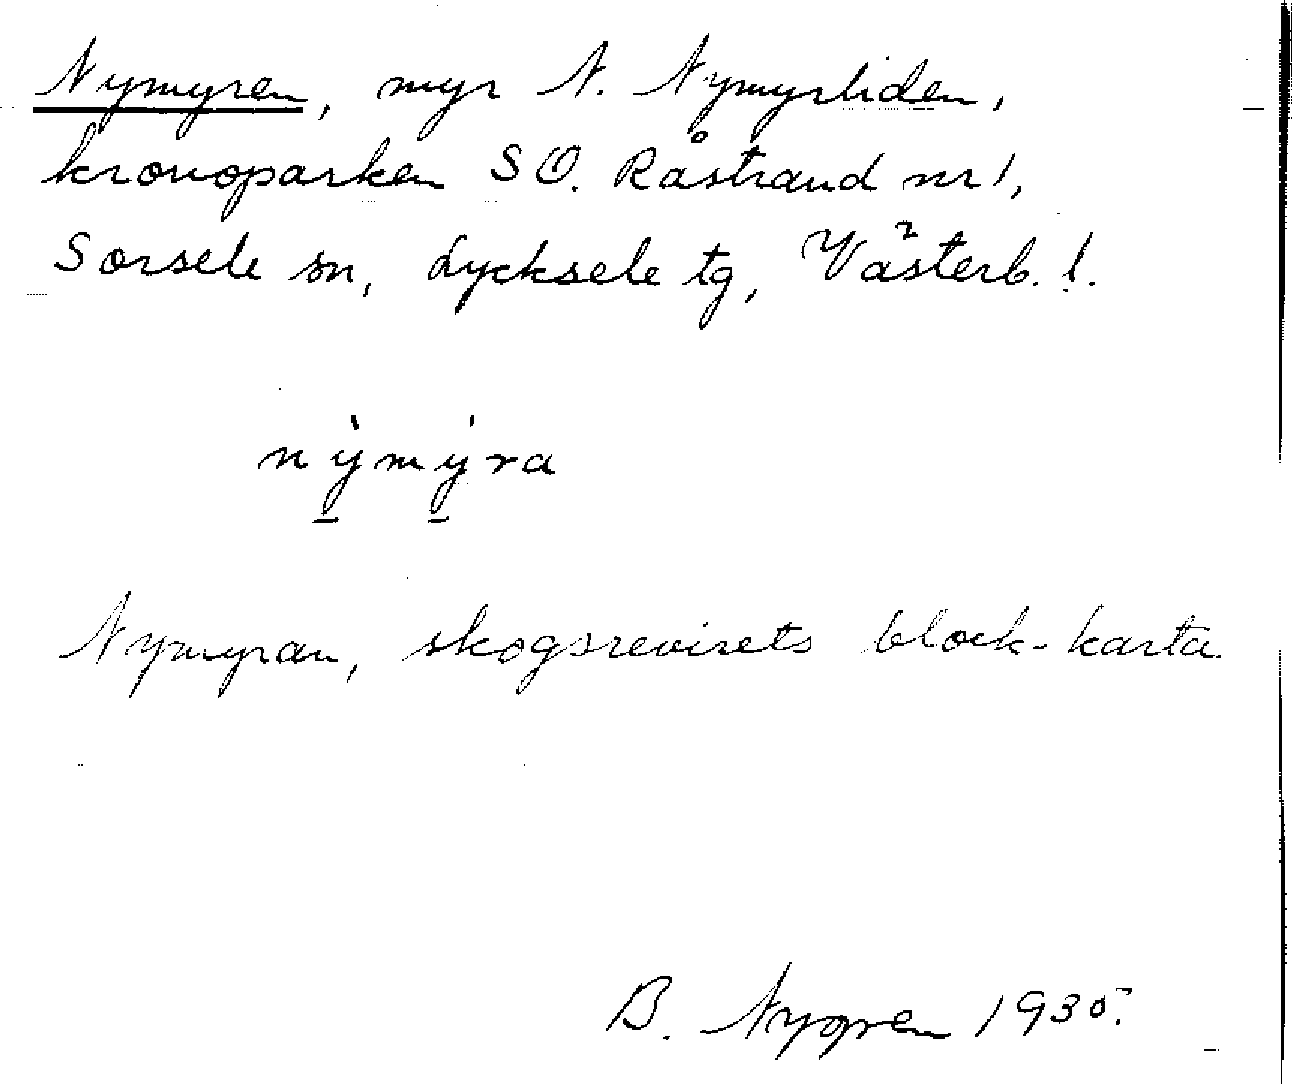 Nymyren, myr N. Nymyrliden,
kronoparken SO. Råstrand nr 1,
Sorsele sn, Lycksele tg, Västerb. l.
nỳmýra
Nymyran, skogsrevisets block-karta
B. Nygren 1935.